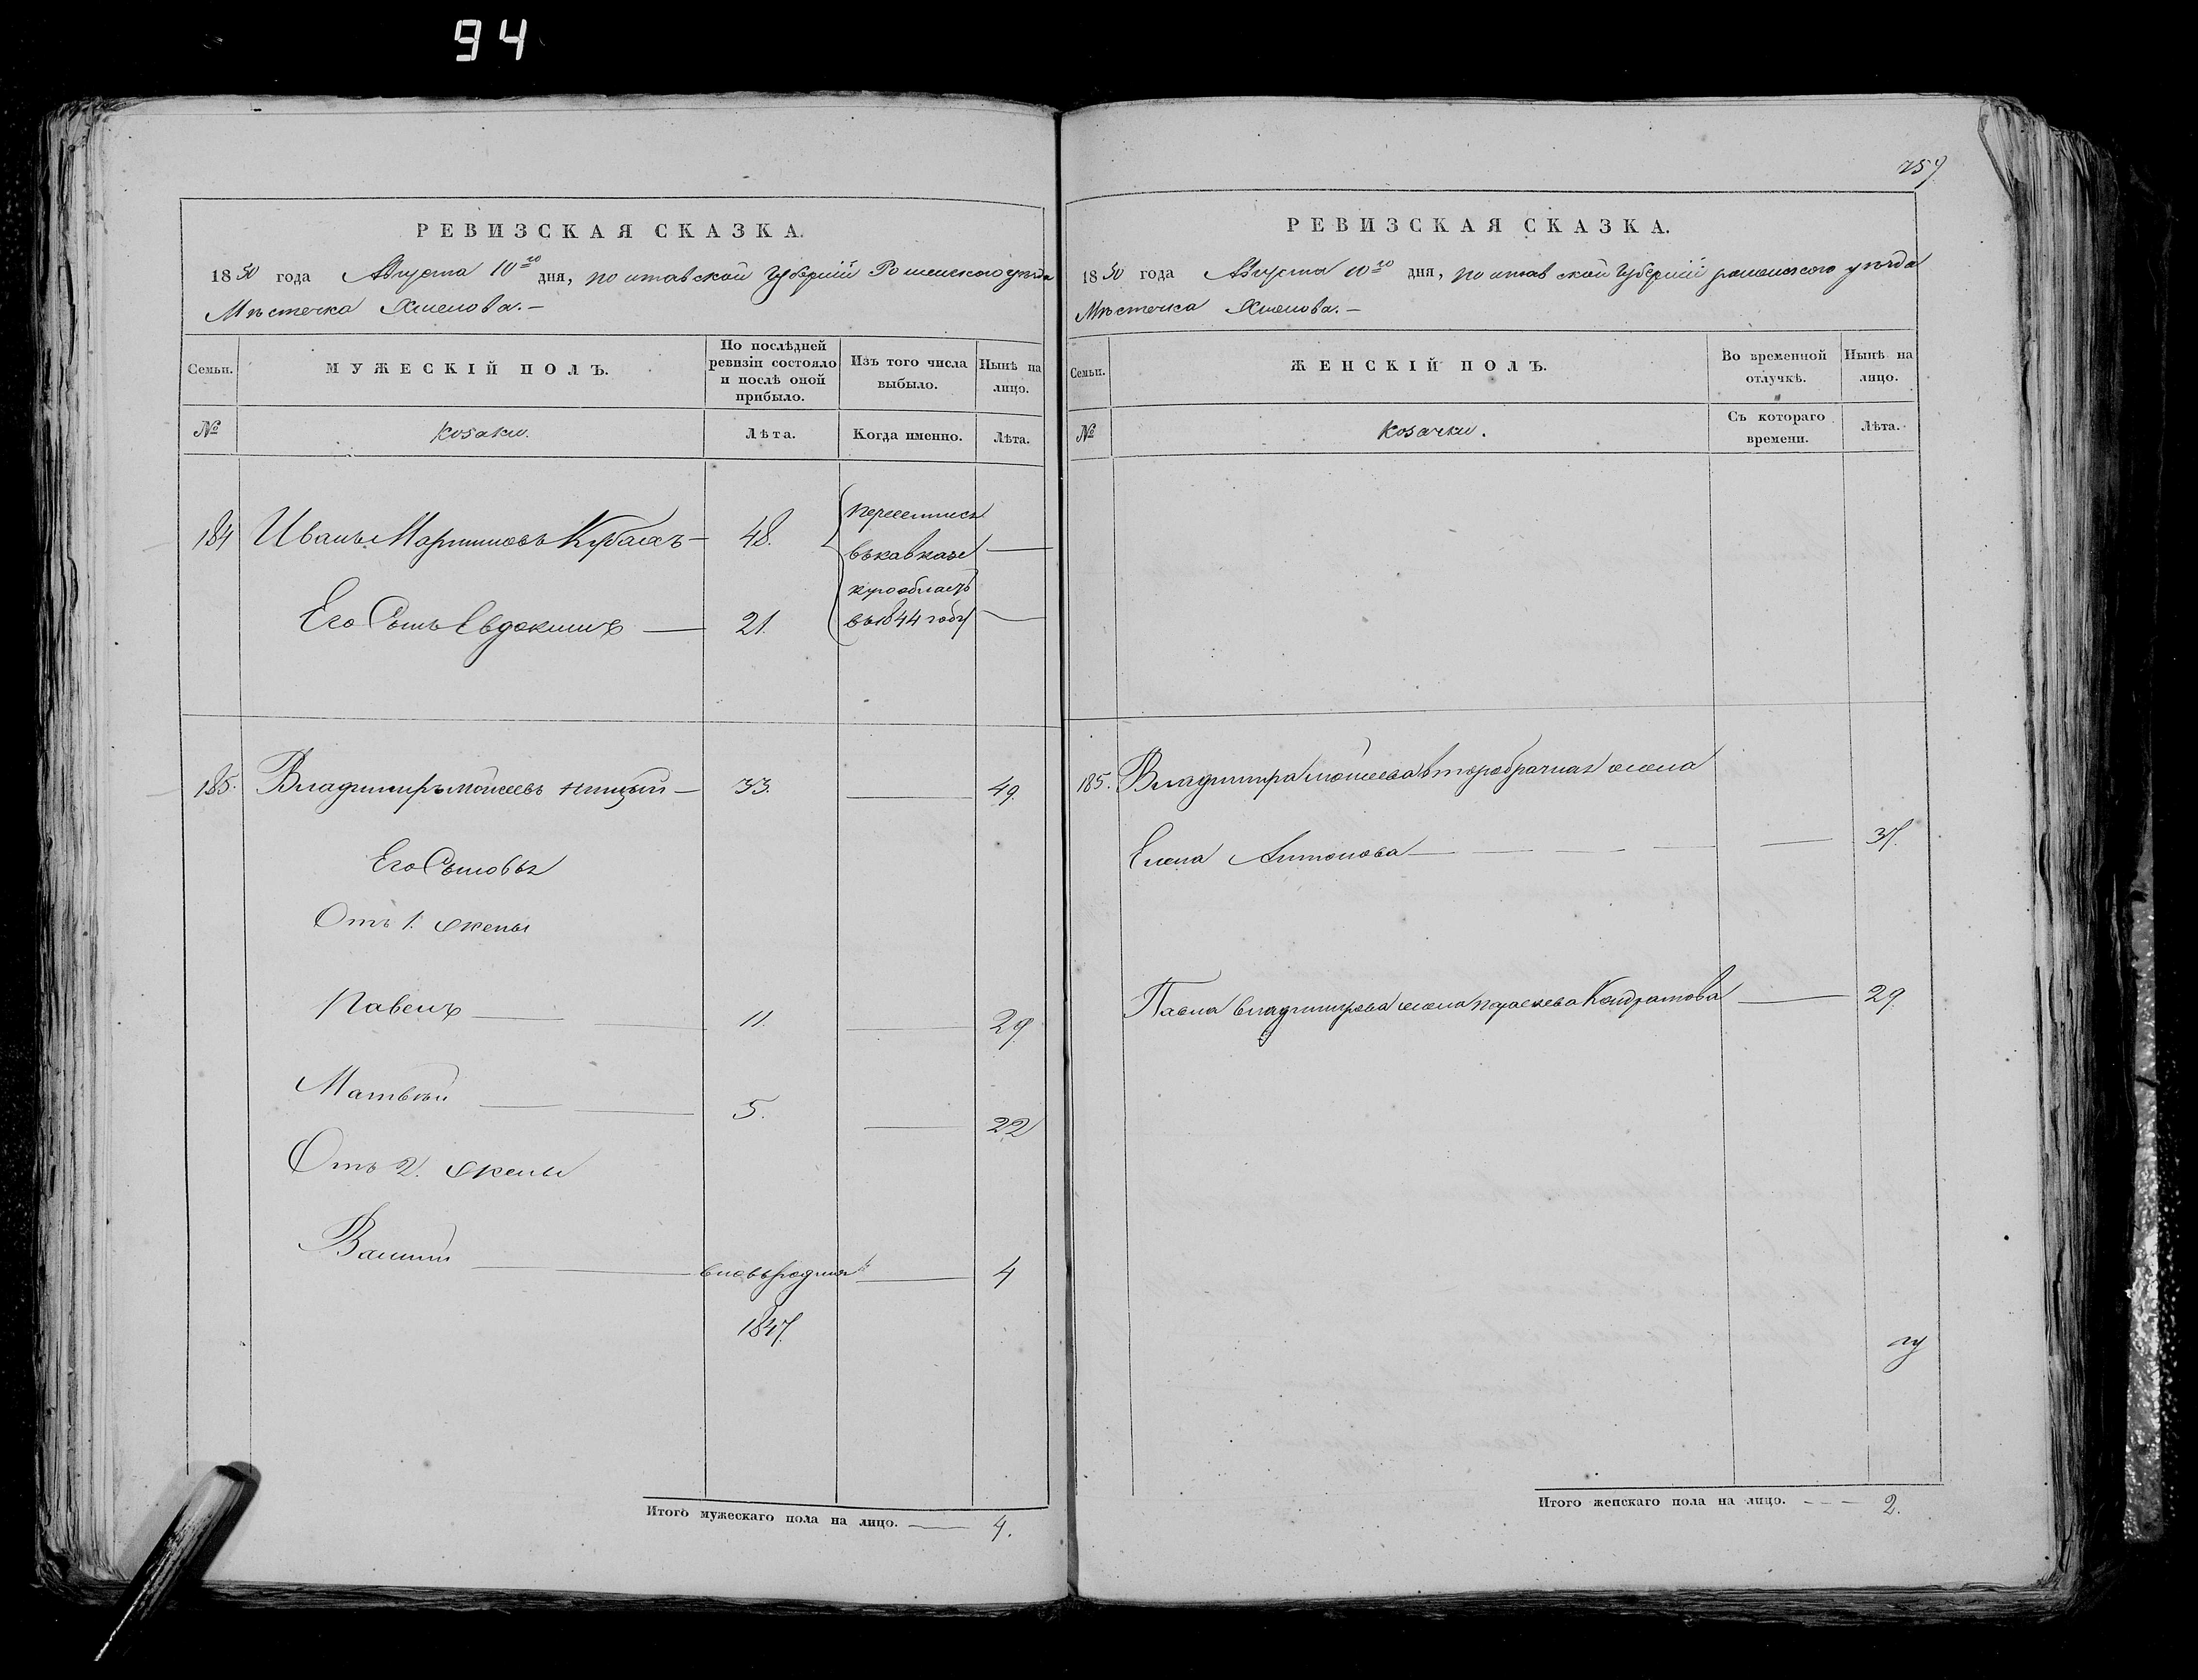 94
759
РЕВИЗСКАЯ СКАЗКА.
1850 года Августа 10го дня, Полтавской Губерніи Роменского уѣзда
Мѣстечка Хмелова.—
Семьи.
МУЖЕСКІЙ ПОЛЪ.
По послѣдней ревизіи состояло и послѣ оной прибыло.
Изъ того числа выбыло.
Нынѣ на лицо.
№
Козаки.
Лѣта.
Когда именно.
Лѣта.
184 Иванъ Мартиновъ Кубахъ — 48.
переселились
въ кавказс
кую область
въ 1844 году
Его Сынъ Евдокимъ — 21.
185. Владимиръ Моисеевъ — 33. — 49.
Его Сыновья
Отъ 1. жены
Павелъ — 11. — 29
Матвѣй — 5. — 22
Отъ 2. жены
Василий — вновь родился — 4
1847.
Итого мужескаго пола на лицо. — 4.
РЕВИЗСКАЯ СКАЗКА.
1850 года Августа 10го дня, Полтавской Губерніи роменского уѣзда
Мѣстечка Хмелова.—
Семьи.
ЖЕНСКІЙ ПОЛЪ.
Во временной отлучкѣ.
Нынѣ на лицо.
№
Козачки.
Съ котораго времени.
Лѣта.
185. Владимира Моисеева второбрачная жена
Елена Антонова — 37.
Павла владимирова жена параскева Кондратова — 29
Итого женскаго пола на лицо. — 2.